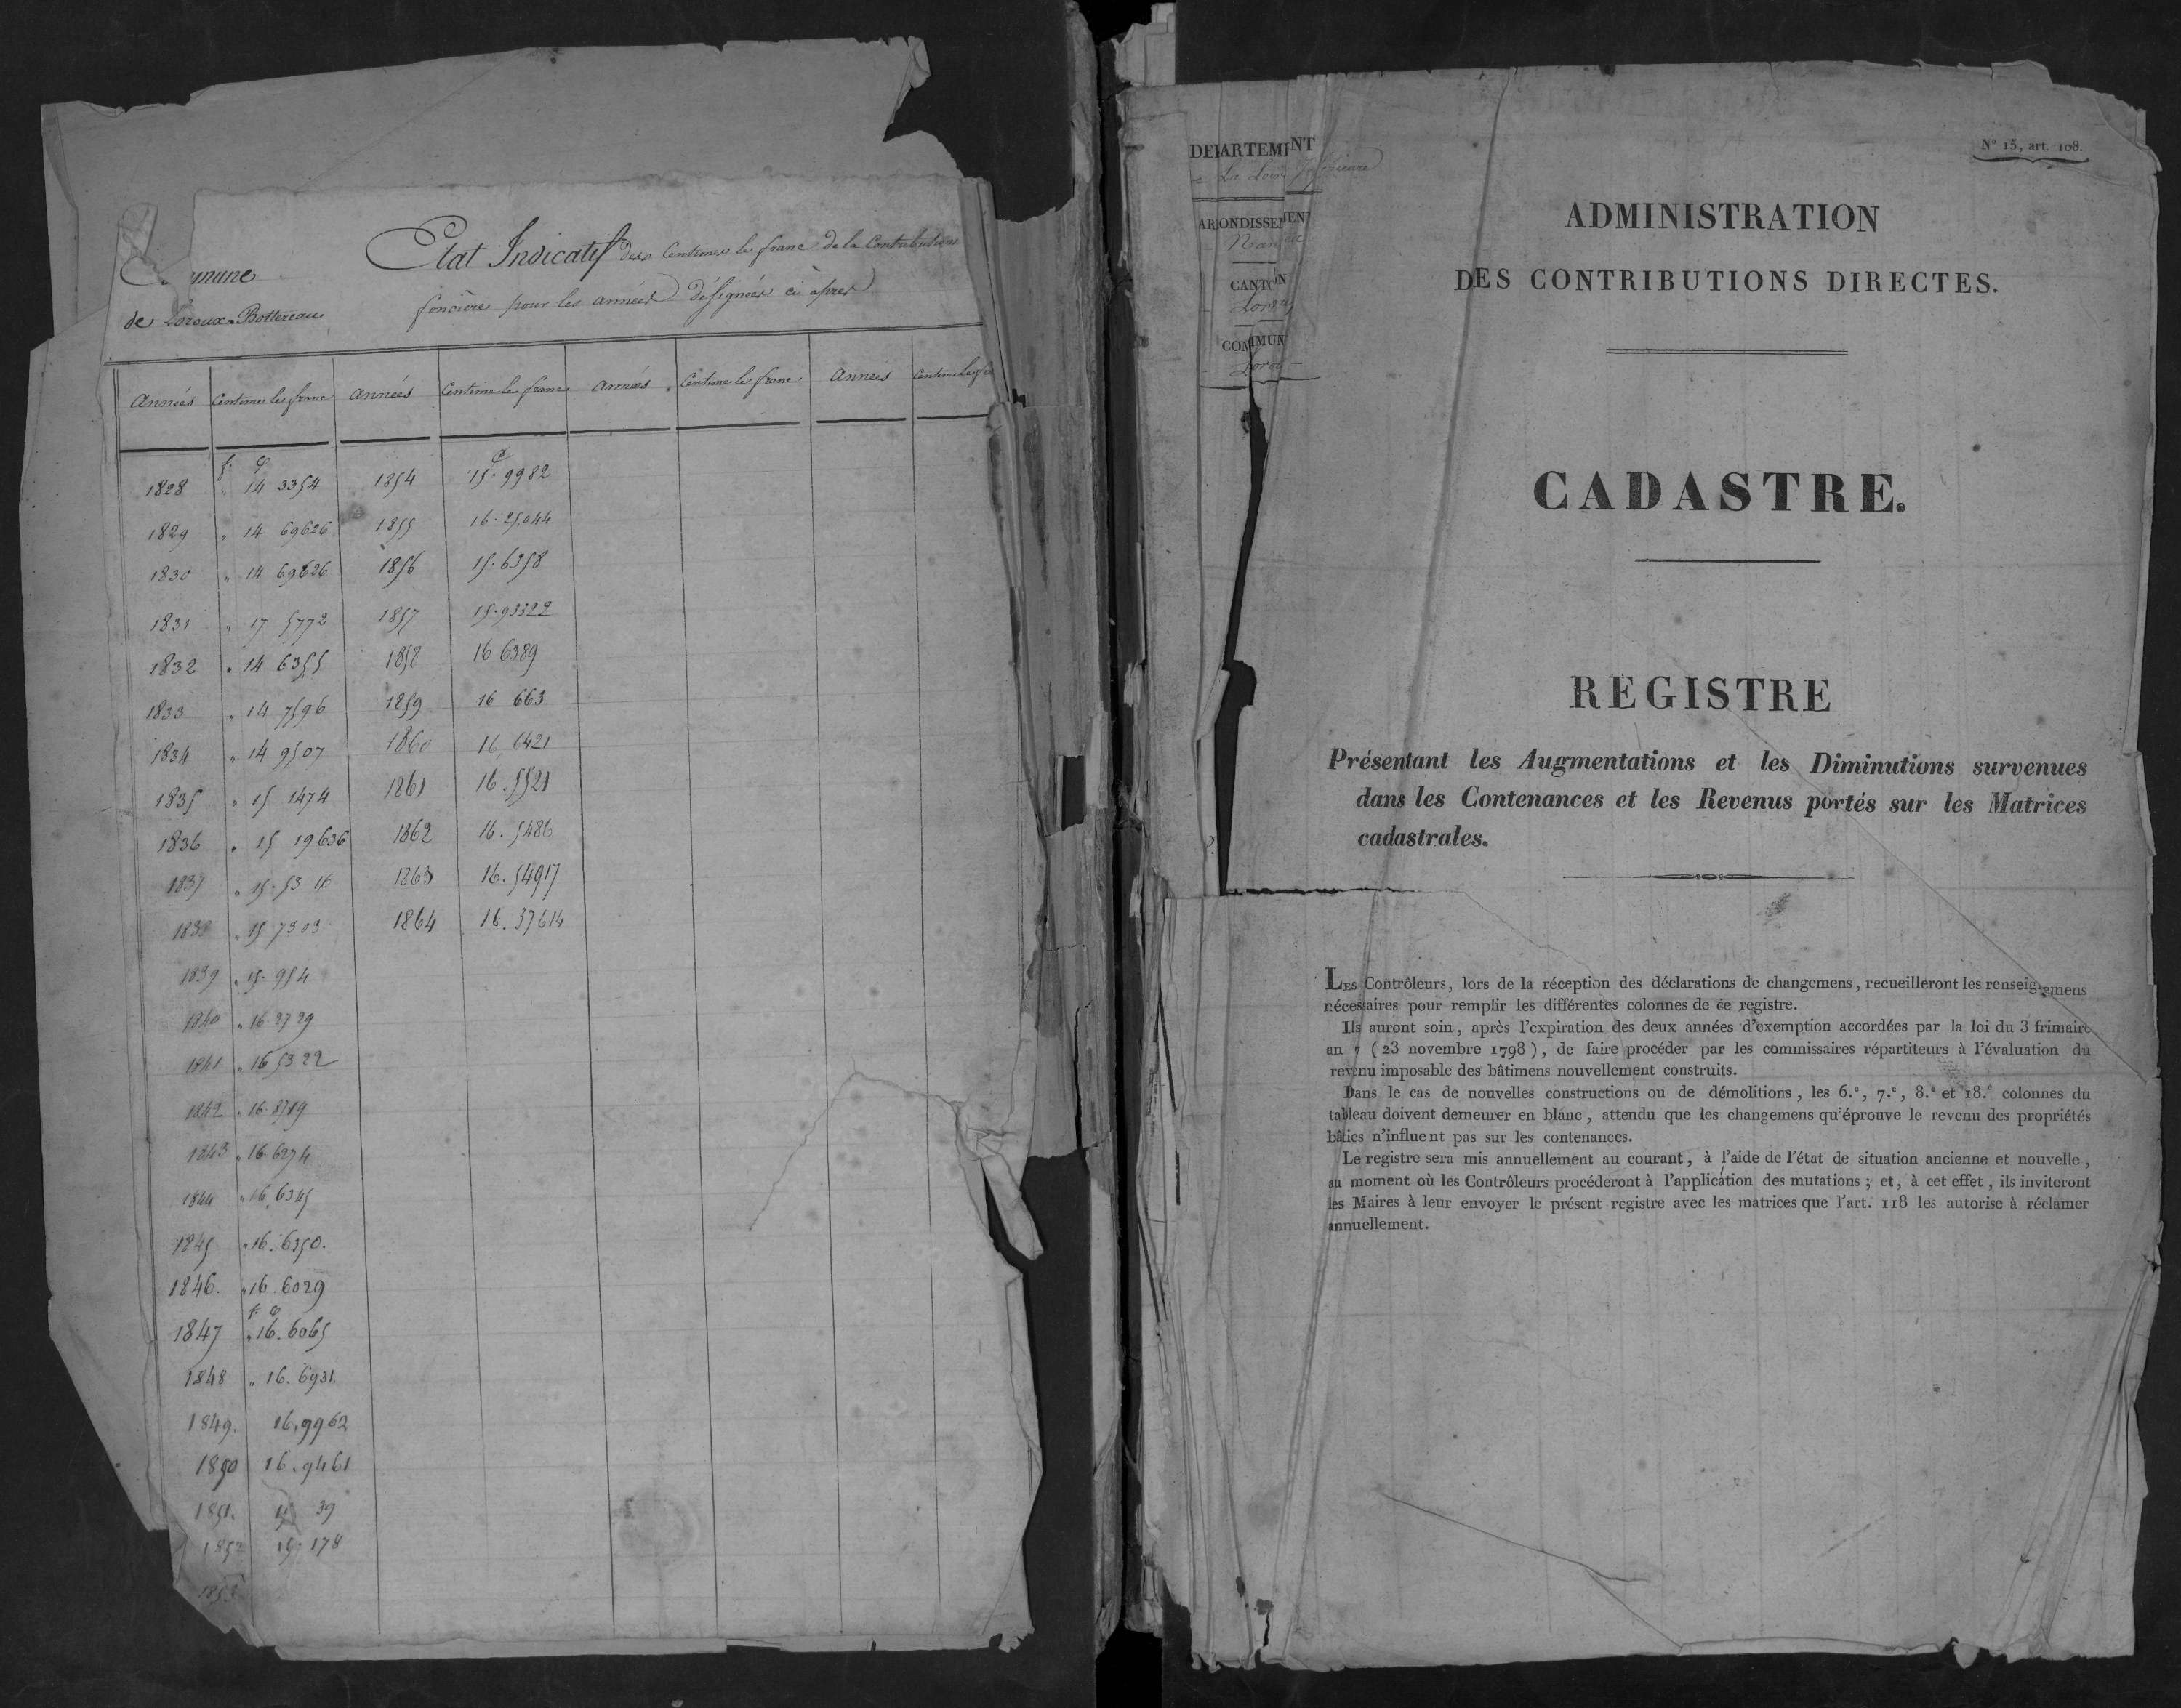 Commune
de Loroux-Bottereau
Etat Indicatif des Centimes le franc de la Contribution
foncière pour les années désignées ci après
Années Centimes le franc Années Centime le franc Années Centime le franc Années Centime le
f. c c
1828 " 14 3354 1854 15. 9982
1829 " 14 69626 1855 16. 25044
1830 " 14 69626 1856 15. 6358
1831 " 17 5772 1857 15. 93322
1832 " 14 6355 1858 16 6389
1833 " 14 7596 1859 16 663
1834 " 14 9507 1860 16 6421
1835 " 15 1474 1861 16. 5521
1836 " 15 19636 1862 16. 5486
1837 " 15. 53 16 1863 16. 54917
1838 " 15 7303 1864 16. 37614
1839 " 15. 954
1840 " 16. 2729
1841 " 16 5322
1842 " 16 8719
1843 " 16 6274
1844 " 16. 6345
1845 " 16. 6350.
1846. " 16. 6029
f. c
1847 " 16. 6065
1848 " 16. 6931.
1849. 16. 9962
1850 16. 9461
1851. 15 39
1852 15. 178
1853
N° 15, art. 108.
DEPARTEMENT
de La Loire Inférieure
ARRONDISSEMENT
Nantes
CANTON
COMMUN
ADMINISTRATION
DES CONTRIBUTIONS DIRECTES.
CADASTRE.
REGISTRE
Présentant les Augmentations et les Diminutions survenues
dans les Contenances et les Revenus portés sur les Matrices
cadastrales.
LES Contrôleurs, lors de la réception des déclarations de changemens, recueilleront les renseignemens
nécessaires pour remplir les différentes colonnes de ce registre.
Ils auront soin, après l'expiration des deux années d'exemption accordées par la loi du 3 frimaire
an 7 (23 novembre 1798), de faire procéder par les commissaires répartiteurs à l'évaluation du
revenu imposable des bâtimens nouvellement construits.
Dans le cas de nouvelles constructions ou de démolitions, les 6.e, 7.e, 8.e et 18.e colonnes du
tableau doivent demeurer en blanc, attendu que les changemens qu'éprouve le revenu des propriétés
bâties n'influent pas sur les contenances.
Le registre sera mis annuellement au courant, à l'aide de l'état de situation ancienne et nouvelle,
au moment où les Contrôleurs procéderont à l'application des mutations; et, à cet effet, ils inviteront
les Maires à leur envoyer le présent registre avec les matrices que l'art. 118 les autorise à réclamer
annuellement.